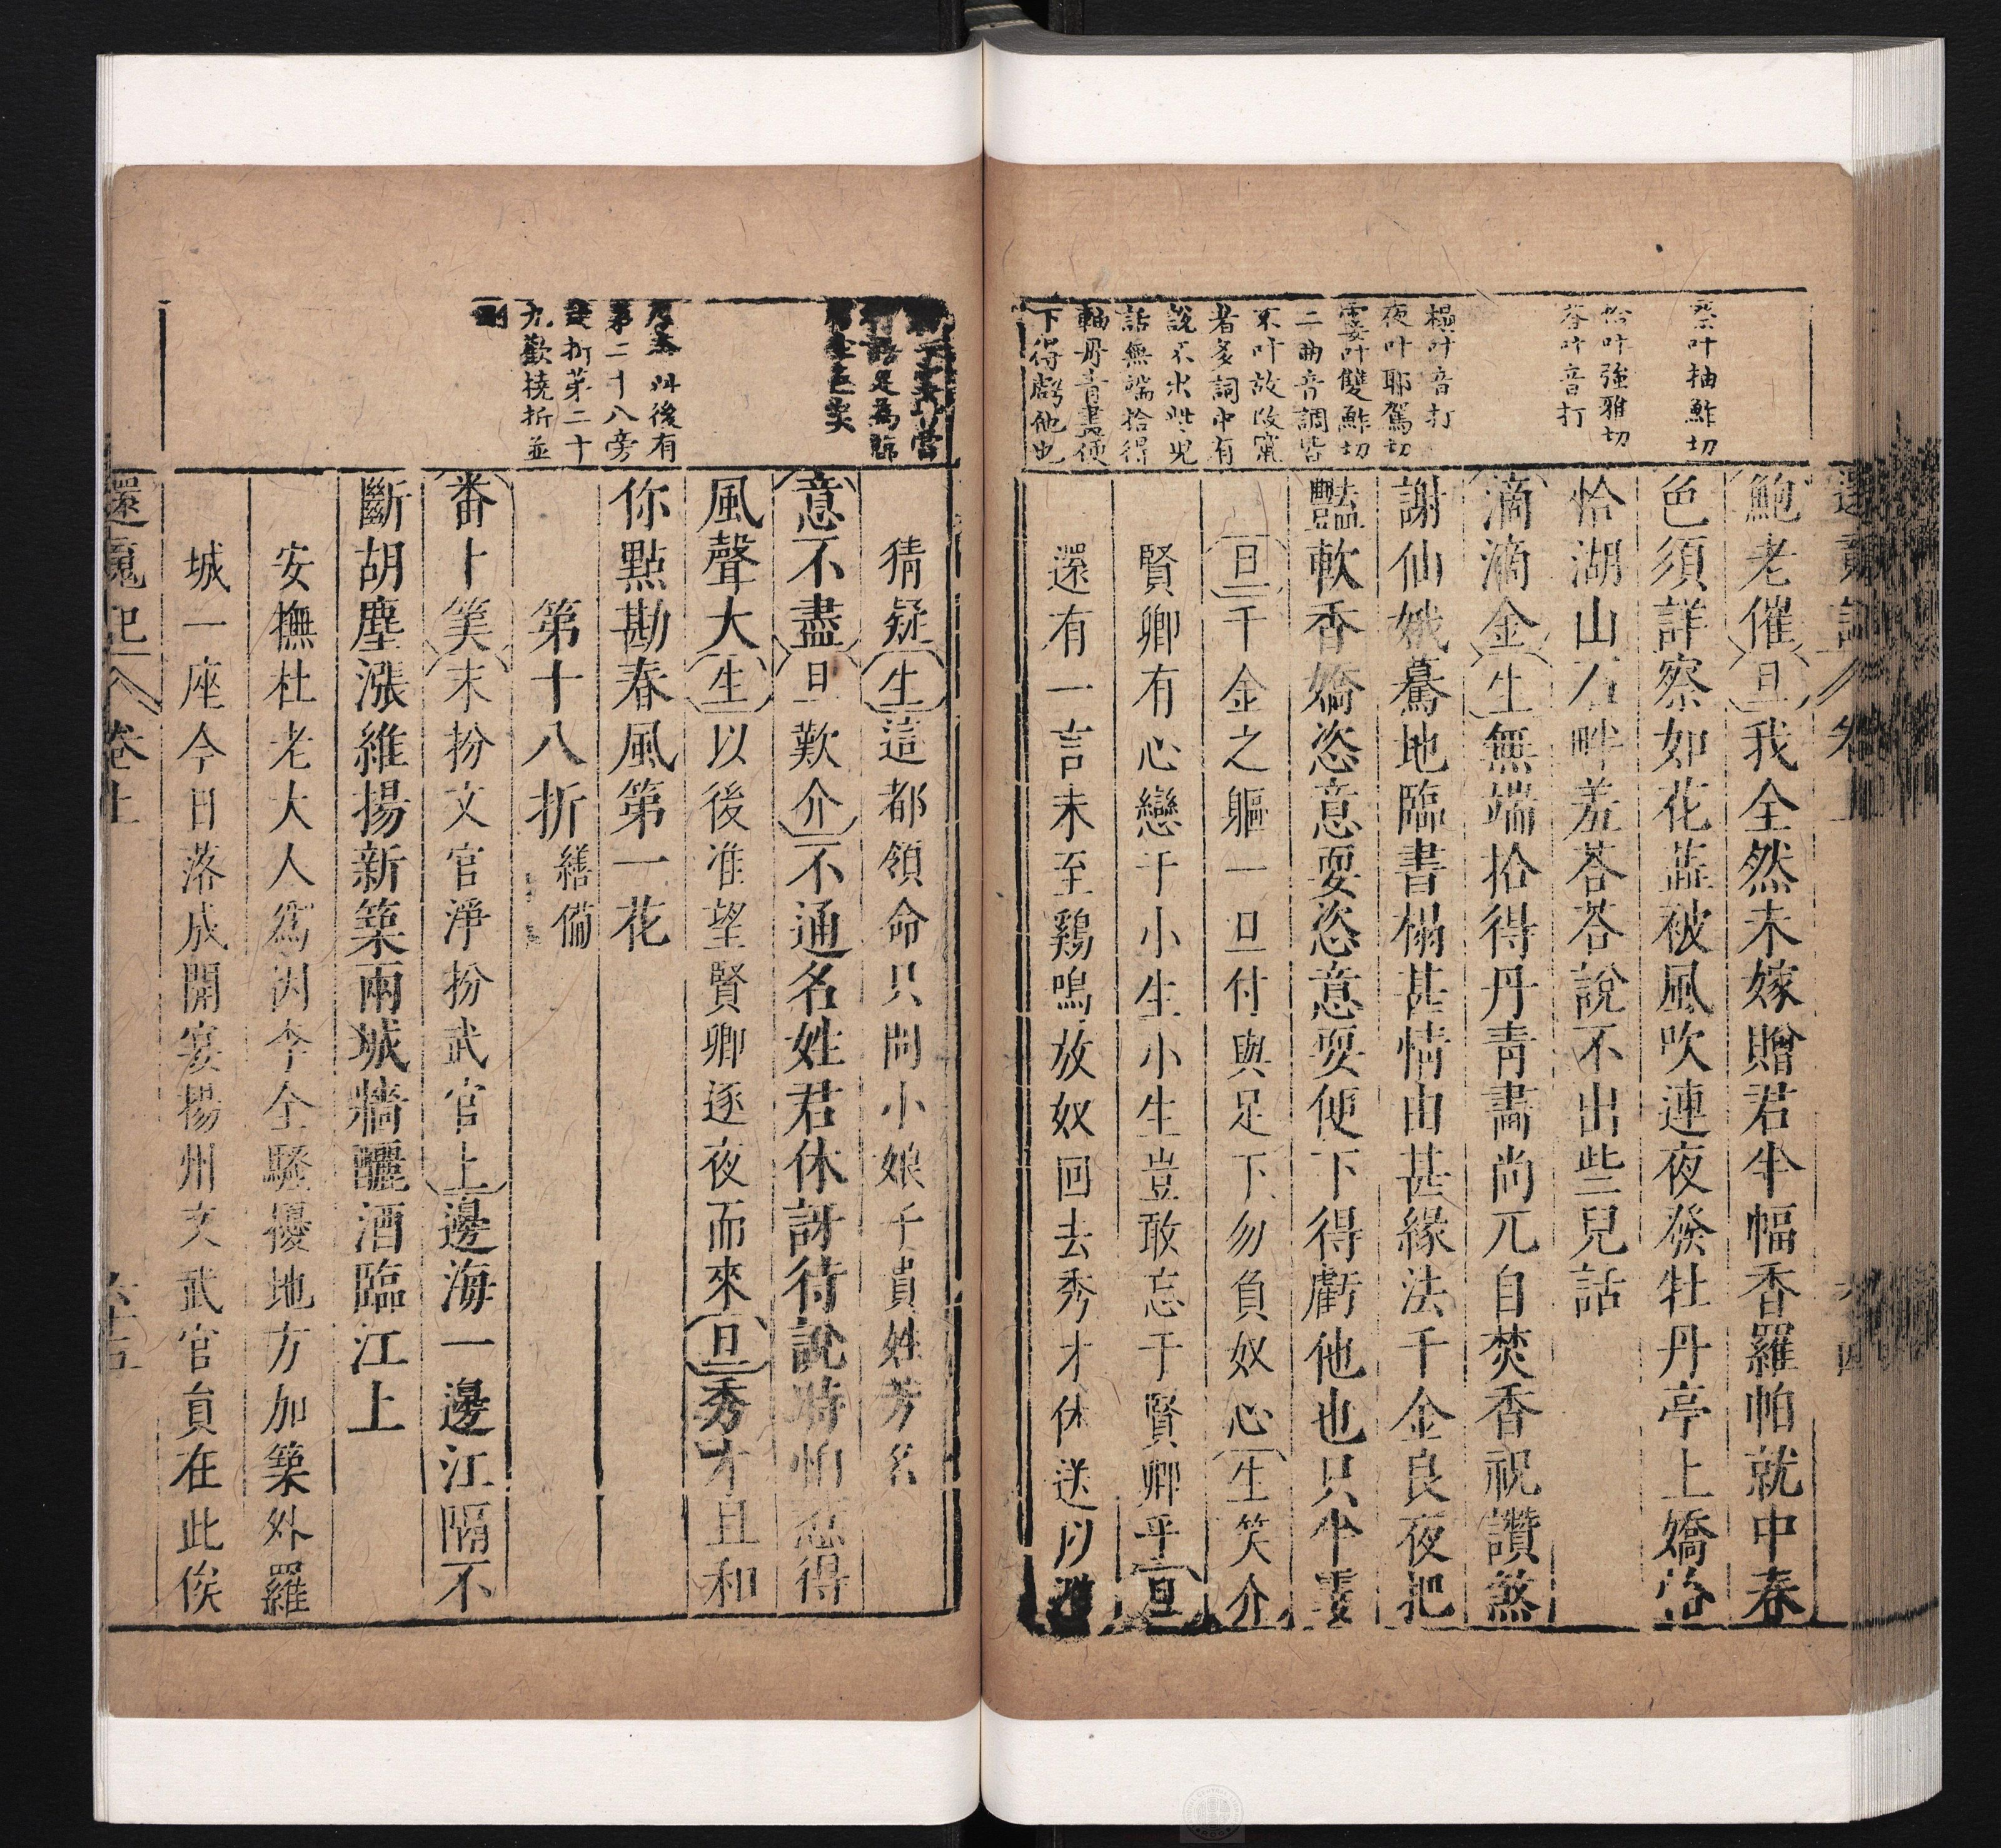 察叶抽鮓切
恰叶強雅切
荅叶音打
榻叶音打
夜叶耶駕切
霎叶雙鮓切
二曲音調皆
不叶故改竄
者多詞中有
說不出些兒
話無端拾得
軸丹青畫便
下得虧他也
鮑老催旦我全然未嫁贈君半幅香羅帕就中春
色須詳察如花蕊被風吹連夜發牡丹亭上嬌恰
恰湖山右畔羞荅荅說不出些兒話
滴滴金生無端拾得丹青畵尚兀自焚香祝讚煞
謝仙娥驀地臨書榻甚情由甚緣法千金良夜把
豔軟香嬌恣意耍恣意耍便下得虧他也只半霎
旦千金之軀一旦付與足下勿負奴心生笑介
賢卿有心戀于小生小生豈敢忘于賢卿乎旦
還有一言未至鷄鳴放奴回去秀才休送以避
猜疑生這都領命只問小娘子貴姓芳名
意不盡旦歎介不通名姓君休訝待說時怕惹得
風聲大生以後准望賢卿逐夜而來旦秀才且和
你點勘春風第一花
第十八折 繕備
番卜筭末扮文官淨扮武官上邊海一邊江隔不
斷胡塵漲維揚新築兩城牆釃酒臨江上
安撫杜老大人爲因李全騷擾地方加築外羅
城一座今日落成開宴揚州文武官員在此俟
後有
第二十八旁
折第二十
九歡撓折並
刪
還魂記 卷上 六十五